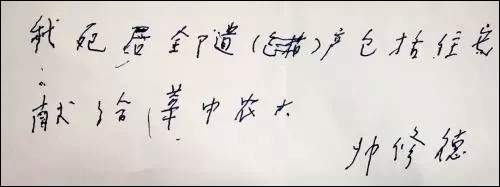 我死后全部遗(包括)产包括住房
献给(華中农大
帅修德